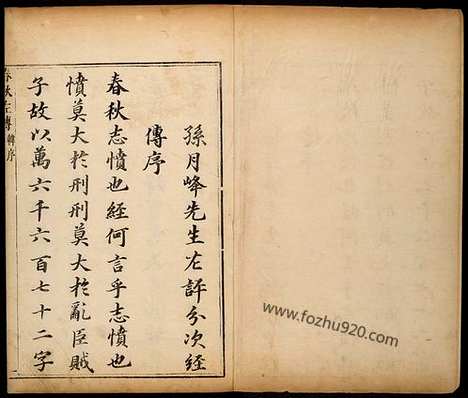 孫月峰先生左評分次經
傳序
春秋志憤也經何言乎志憤也
憤莫大於刑刑莫大於亂臣賊
子故以萬六千六百七十二字
春秋左傳
韓序
www.fozhu920.com